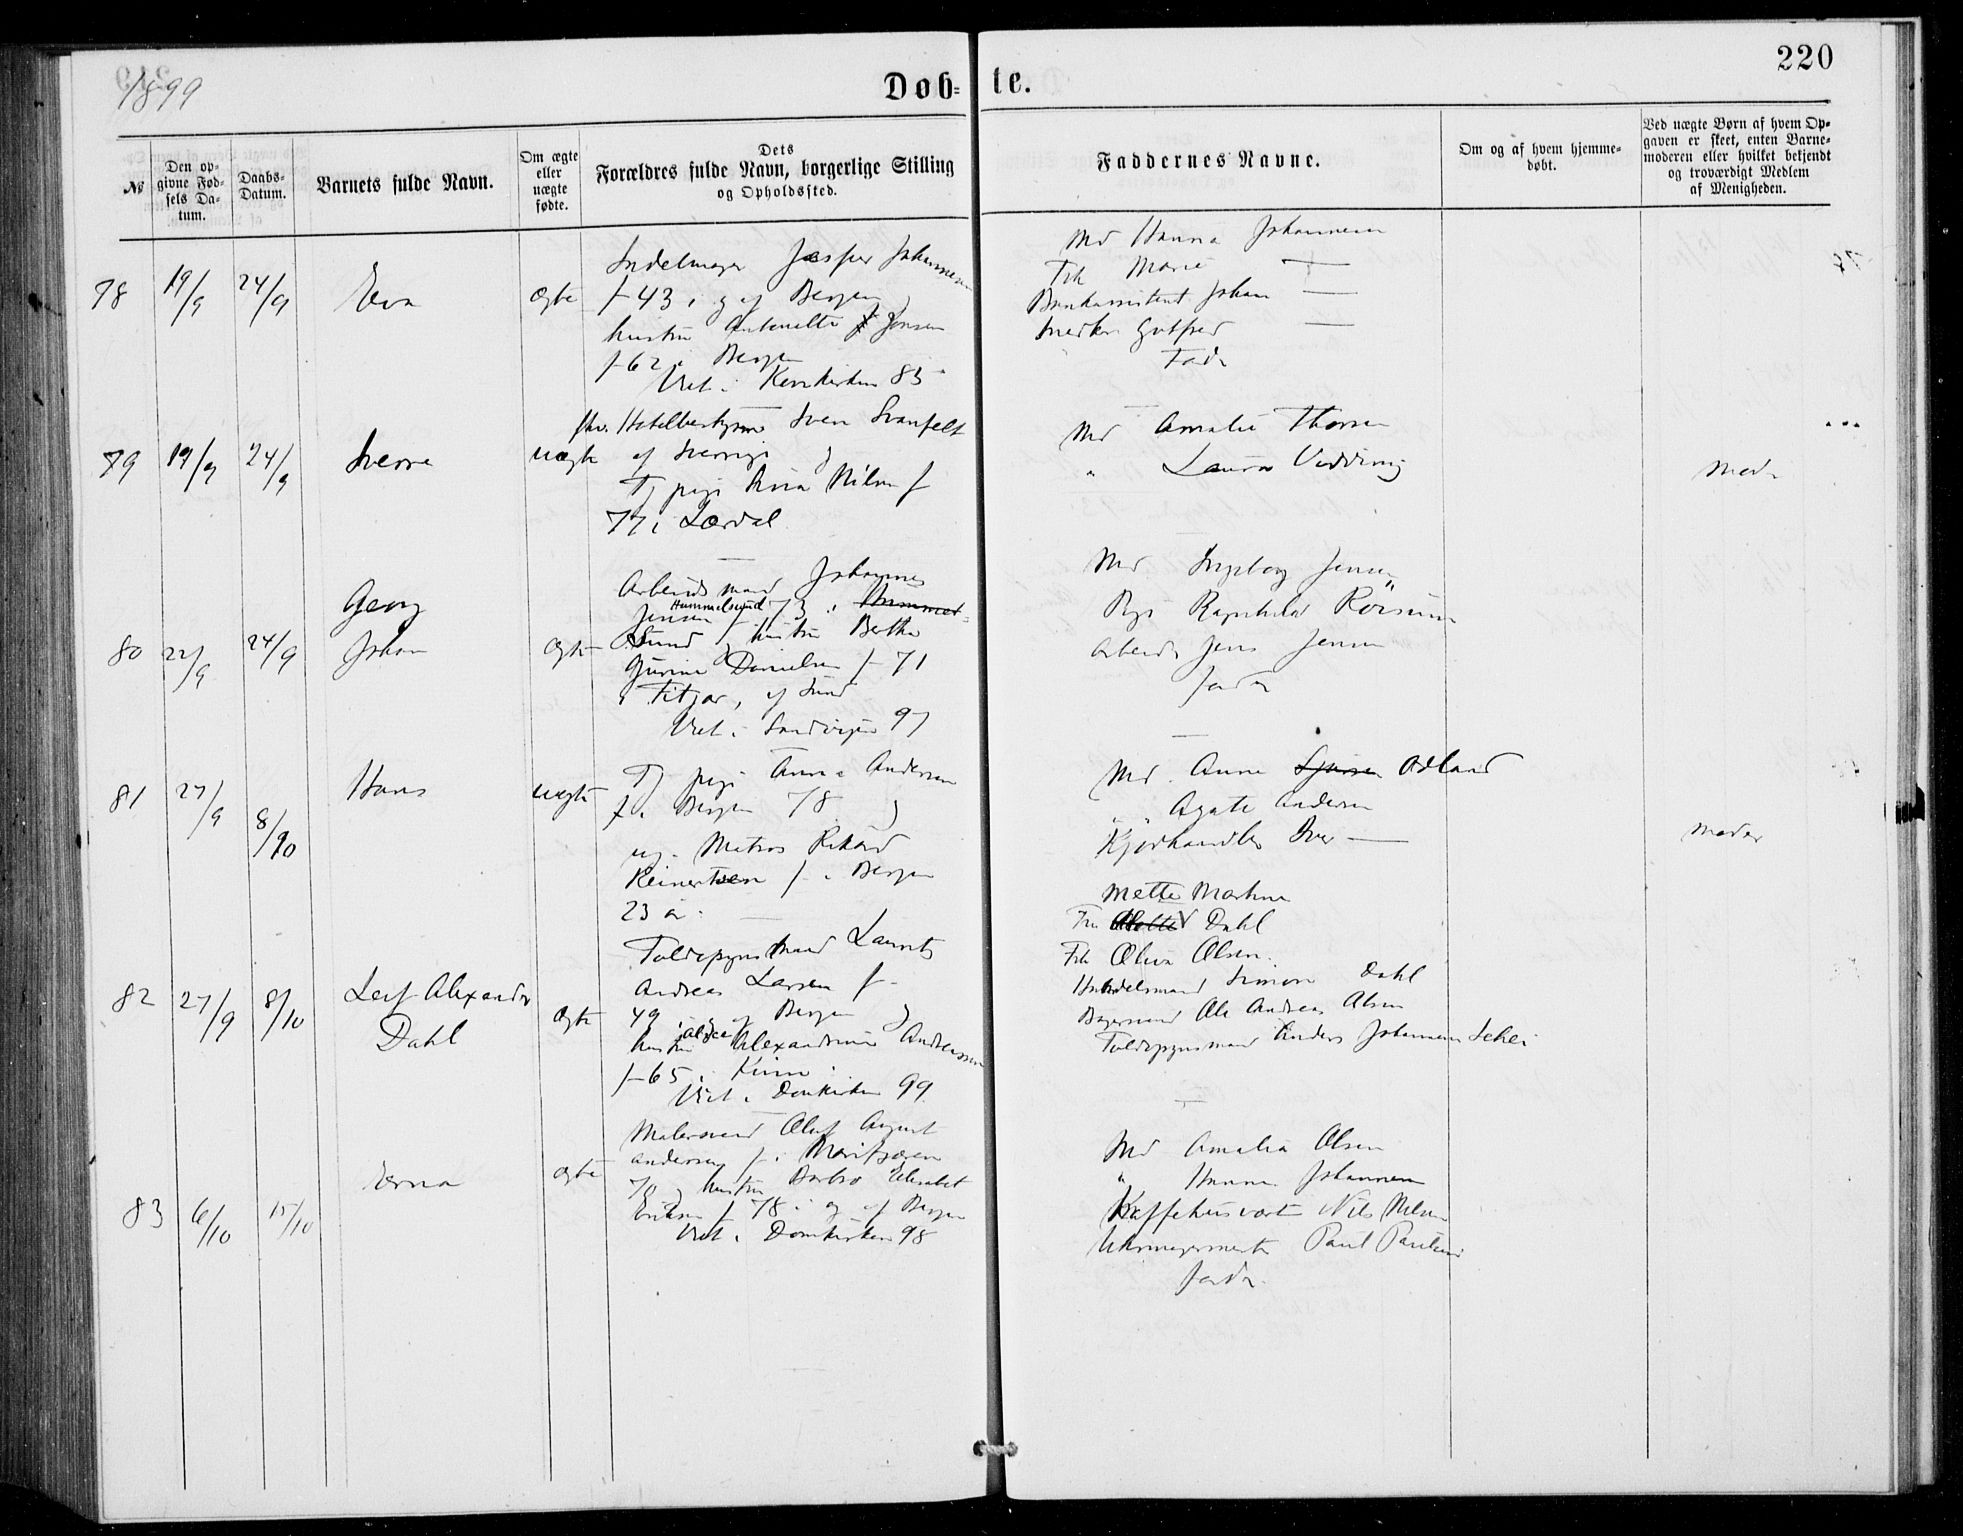 1899
Døb=
te.
220
№
Den op-
givne Fød-
sels Da-
tum.
Daabs-
Datum.
Barnets fulde Navn.
Om ægte
eller
uægte
fødte.
Dets
Forældres fulde Navn, borgerlige Stilling
og Opholdssted.
Faddernes Navne.
Om og af hvem hjemme-
døbt.
Ved uægte Børn af hvem Op-
gaven er skeet, enten Barne-
moderen eller hvilket bekjendt
og troværdigt Medlem
af Menigheden.
78
19/9
24/9
Eva
Ægte
Jesper Johannesen
f 43 i og af Bergen
hustru Antonette Jonsen
f 62 i Bergen
Viet i Korskirken 83
Md Hanna Johannesen
Frk Marie —
Bankassistent Johan —
Snedker Gotfred —
Fader
79
19/9
24/9
Sverre
uægte
Hotelbestyrer Sven Svanfelt
af Sverrige
Tj pige Anna Nilsen f
77 i Lærdal
Md Amalie Thorsen
" Laura Vedding
Moder
80
22/9
24/9
Georg
Johan
Ægte
Arbeidsmand Johannes
Jensen f 73 i Hummelsund
Sund hustru Bertha
Gurine Danielsen f 71
i Fitjar, af Sund
Viet i Sandvigen 97
Md Ingeborg Jensen
Pige Ragnhild
Arbeider Jens Jensen
fader
81
27/9
8/10
Hans
uægte
Tj pige Anna Andersen
f. i Bergen 78
ug. Matros Rikard
Reinertsen f. i Bergen
23 år.
Md. Anne Sjursen Adland
" Agate Andersen
Iver —
Moder
82
27/9
8/10
Leif Alexander
Dahl
Ægte
Toldopsynsmand Laurits
Andreas Larsen f
49 i og af Bergen
hustru Alexandrine Andreassen
f 65 i Kinn
Viet i Domkirken 99
Mette Martine
Fru Dahl
Frk Olina Olsen.
Handelsmand Simon Dahl
Bagersvend Ole Andreas Olsen
Toldopsynsmand Anders Johannesen Schei
83
6/10
15/10
Erna
Ægte
Malersvend Oluf August
Andersen f. i
70 hustru Barbro Elisabet
Eriksen f 78 i og af Bergen
Viet i Domkirken 98
Md Amalia Olsen
" Hanna Johannesen
Kaffehusvært Nils Nilsen
Uhrmagermester Paul Paulsen
fader.